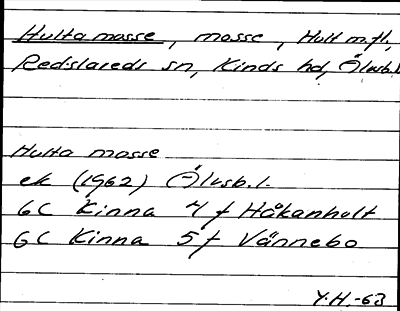 Hulta mosse, mosse, Hult m.fl.,
Redslareds sn, Kinds hd, Älvsb.l.
Hulta mosse
ek (1962) Älvsb.l.
6C Kinna 4 f Håkanhult
6C Kinna 5 f Vännebo
Y.H.-63